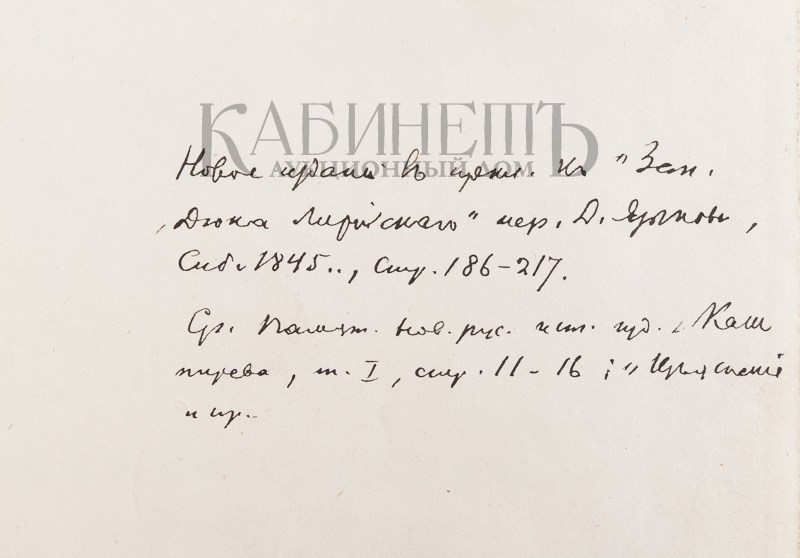 КАБИНЕТЪ
АУКЦИОННЫЙ ДОМ
Новое въ къ "Зап.
Дюка Лирійскаго" пер. Д. Языкова,
Спб. 1845.., стр. 186-217.
Ср. Памят. нов. рус. ист. изд. Каш
пирева, т. I, стр. 11-16; "
и пр.